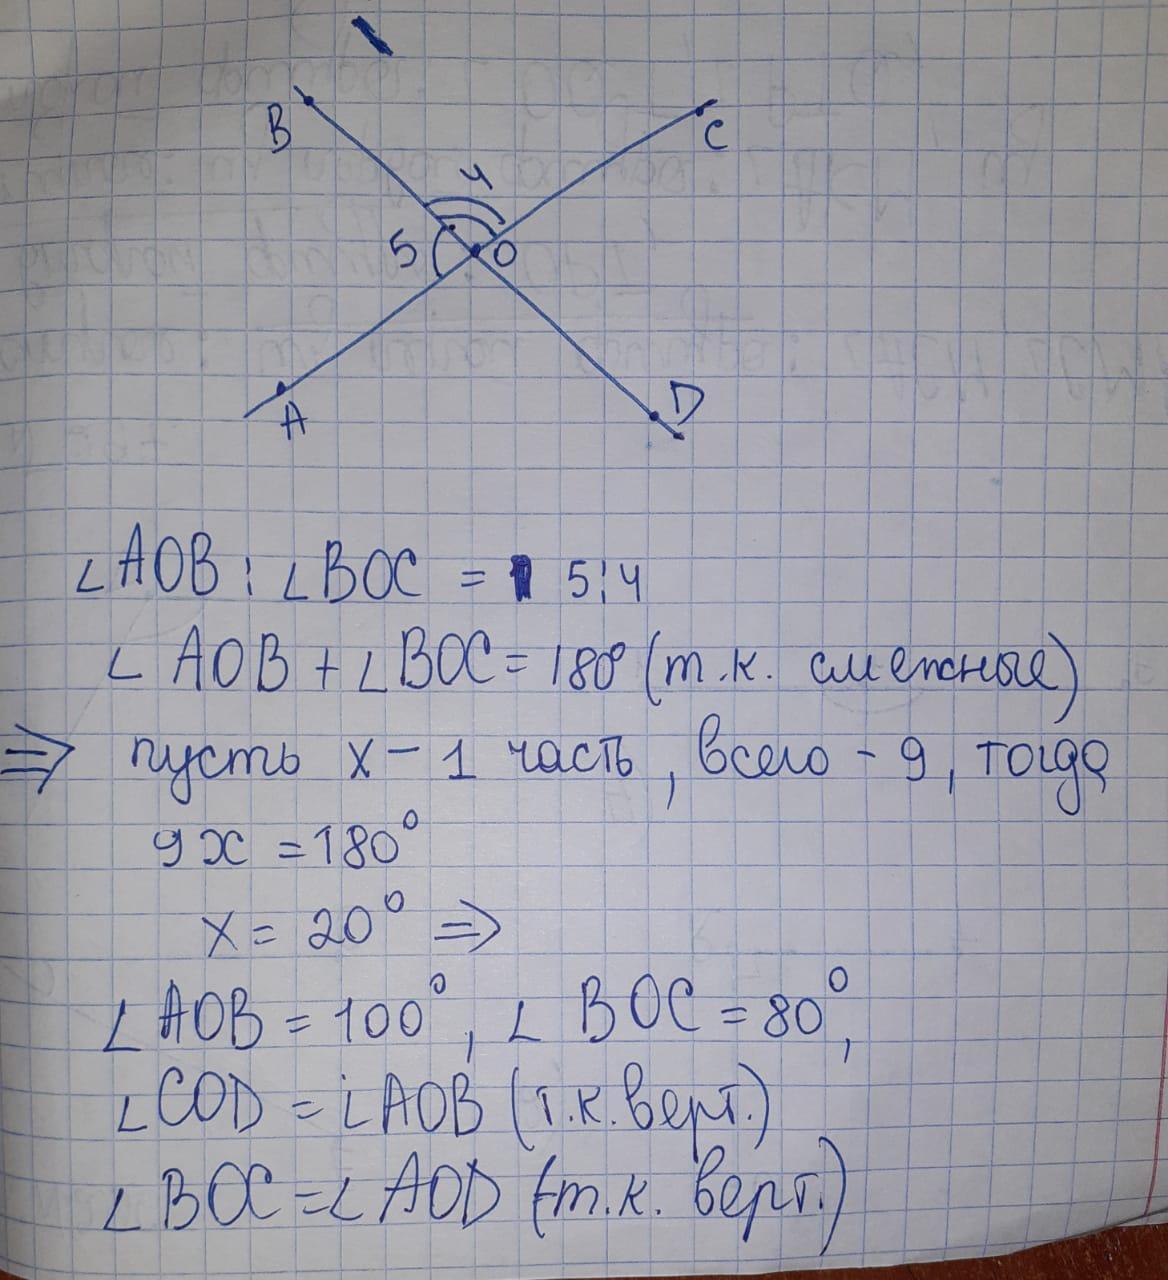 B
C
4
5
O
A
D
∠AOB : ∠BOC = 5:4
∠AOB + ∠BOC = 180° (т.к. смежные)
⇒ пусть x - 1 часть, всего - 9, тогда
9x = 180°
x = 20° ⇒
∠AOB = 100°, ∠BOC = 80°,
∠COD = ∠AOB (т.к. верт.)
∠BOC = ∠AOD (т.к. верт.)